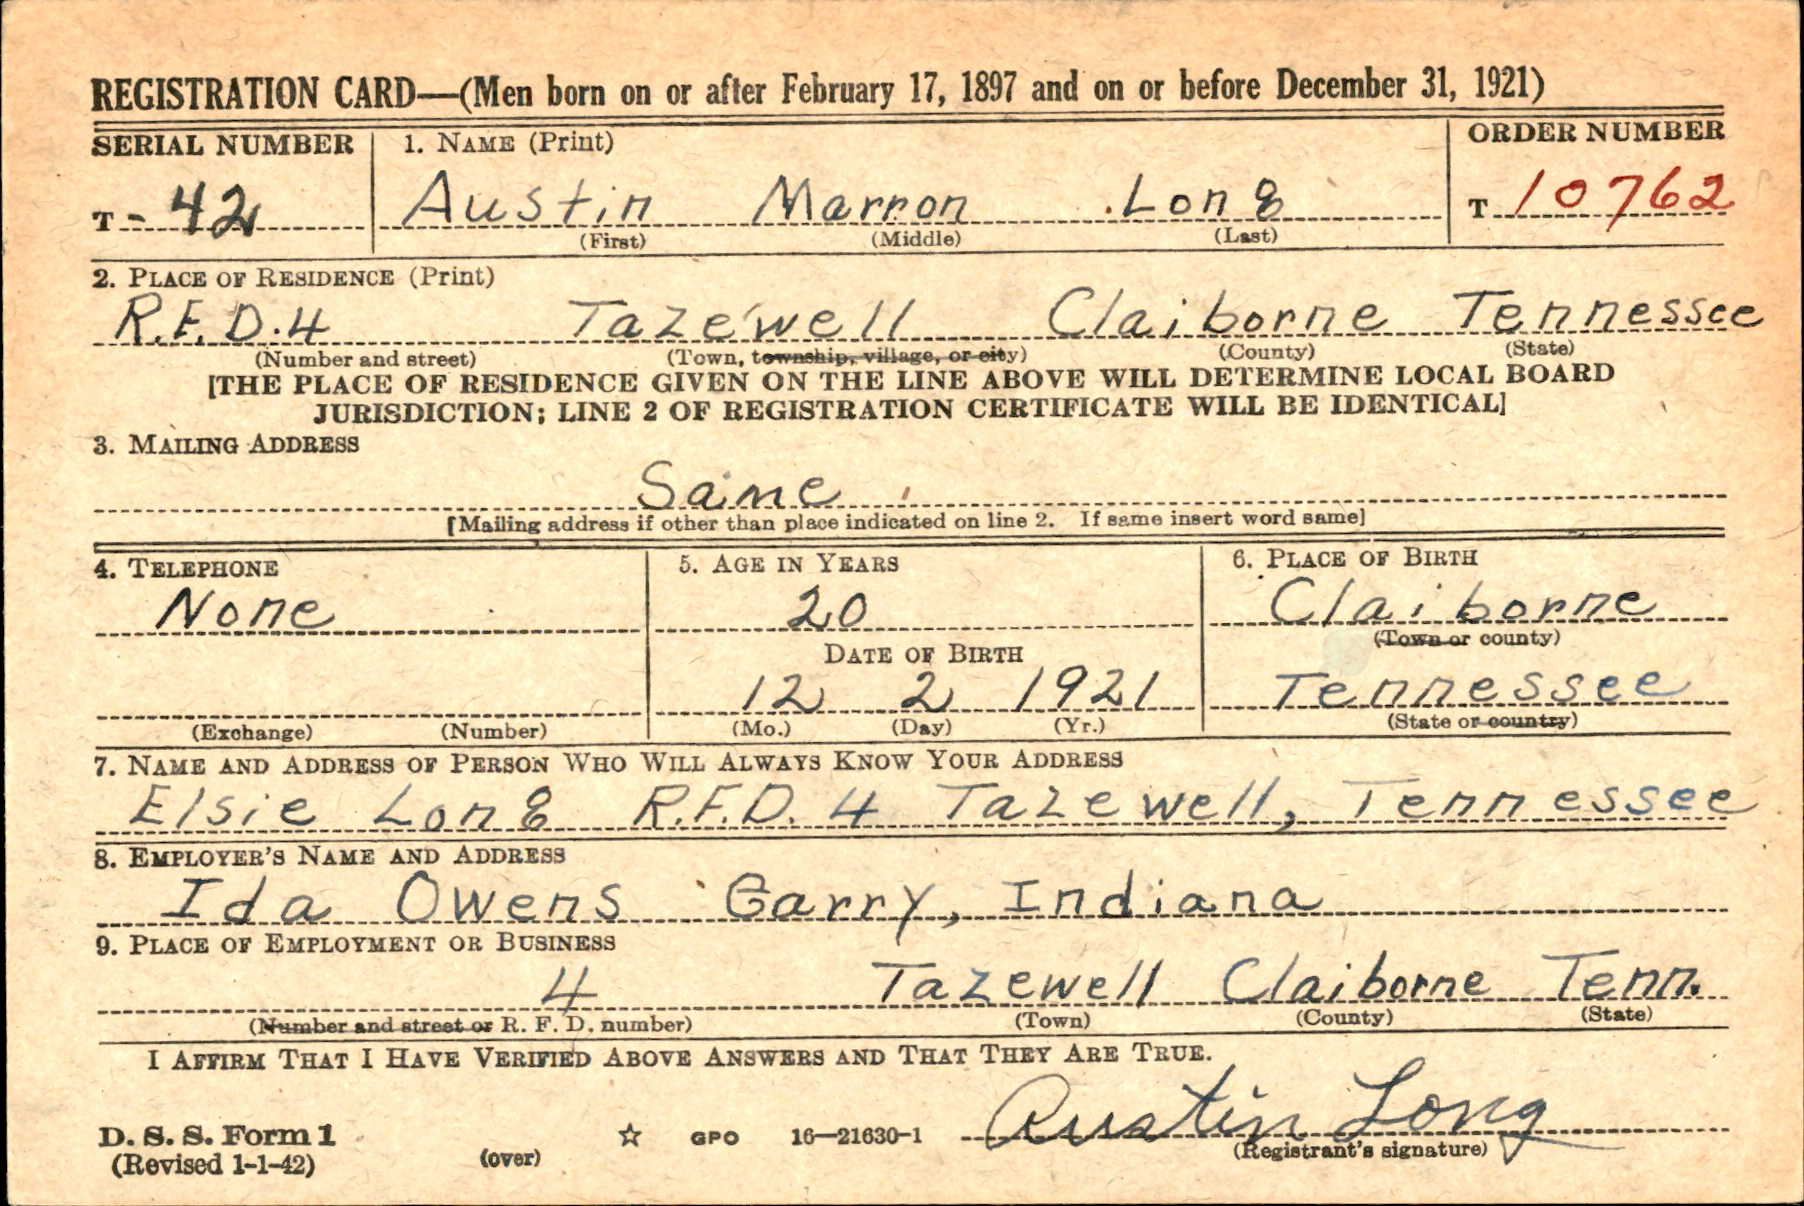 REGISTRATION CARD—(Men born on or after February 17, 1897 and on or before December 31, 1921)
SERIAL NUMBER 1. NAME (Print) ORDER NUMBER
T - 42 Austin Marron Long T 10762
(First) (Middle) (Last)
2. PLACE OF RESIDENCE (Print)
R.F.D. 4 Tazewell Claiborne Tennessee
(Number and street) (Town, township, village, or city) (County) (State)
[THE PLACE OF RESIDENCE GIVEN ON THE LINE ABOVE WILL DETERMINE LOCAL BOARD
JURISDICTION; LINE 2 OF REGISTRATION CERTIFICATE WILL BE IDENTICAL]
3. MAILING ADDRESS
Same
[Mailing address if other than place indicated on line 2. If same insert word same]
4. TELEPHONE 5. AGE IN YEARS 6. PLACE OF BIRTH
None 20 Claiborne
(Town or county)
DATE OF BIRTH
12 2 1921 Tennessee
(Exchange) (Number) (Mo.) (Day) (Yr.) (State or country)
7. NAME AND ADDRESS OF PERSON WHO WILL ALWAYS KNOW YOUR ADDRESS
Elsie Long R.F.D. 4 Tazewell, Tennessee
8. EMPLOYER'S NAME AND ADDRESS
Ida Owens Garry, Indiana
9. PLACE OF EMPLOYMENT OR BUSINESS
4 Tazewell Claiborne Tenn.
(Number and street or R. F. D. number) (Town) (County) (State)
I AFFIRM THAT I HAVE VERIFIED ABOVE ANSWERS AND THAT THEY ARE TRUE.
D. S. S. Form 1 ☆ GPO 16—21630-1 Austin Long
(Revised 1-1-42) (over) (Registrant's signature)